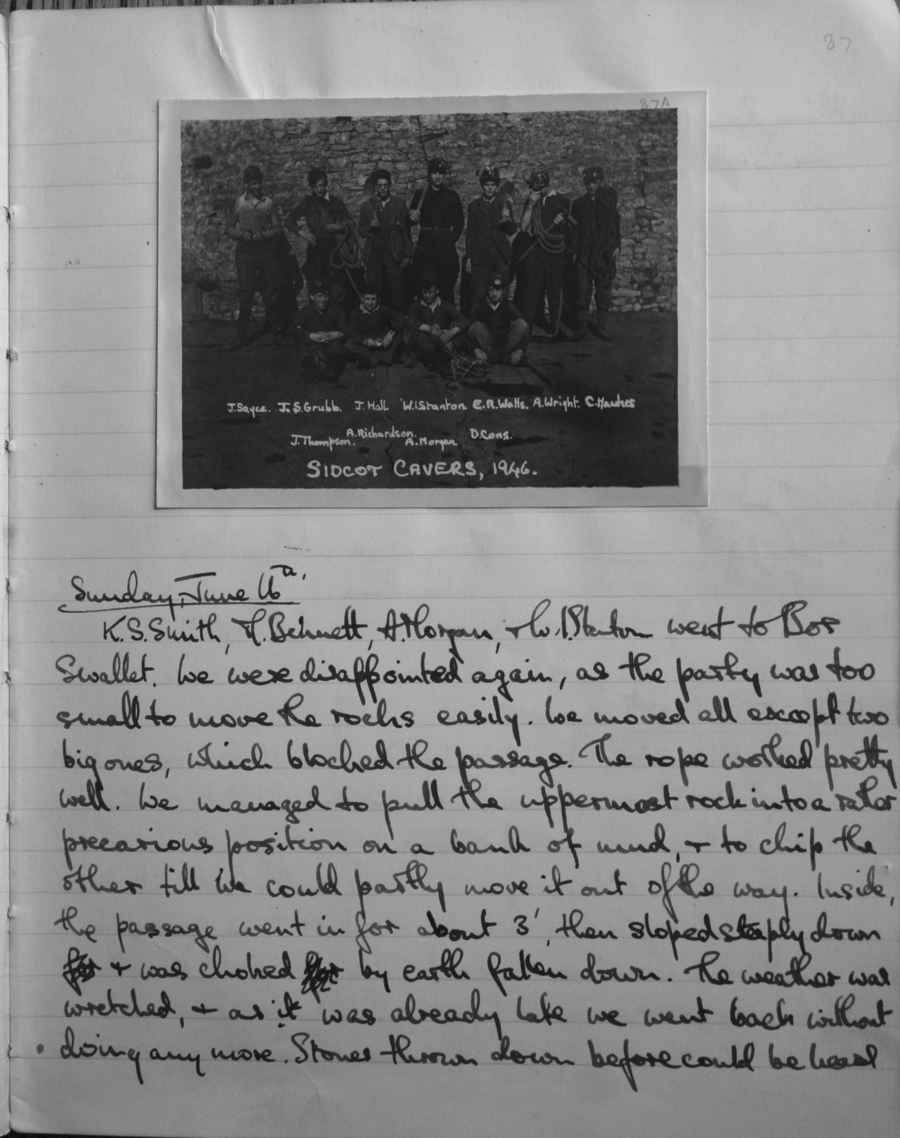 37
37A
J.Sayce. J.S.Grubb. J.Hall W.I.Stanton E.R.Watts. A.Wright. C.Hawkes
J.Thompson. A.Richardson. A.Morgan D.Cons.
SIDCOT CAVERS, 1946.
Sunday, June 16th.
K.S.Smith, M.Bennett, A.Morgan, + W.I.Stanton went to Bos
Swallet. We were disappointed again, as the party was too
small to move the rocks easily. We moved all except two
big ones, which blocked the passage. The rope worked pretty
well. We managed to pull the uppermost rock into a rather
precarious position on a bank of mud, + to chip the
other till we could partly move it out of the way. Inside,
the passage went in for about 3', then sloped steeply down
+ was choked by earth fallen down. The weather was
wretched, + as it was already late we went back without
doing any more. Stones thrown down before could be heard